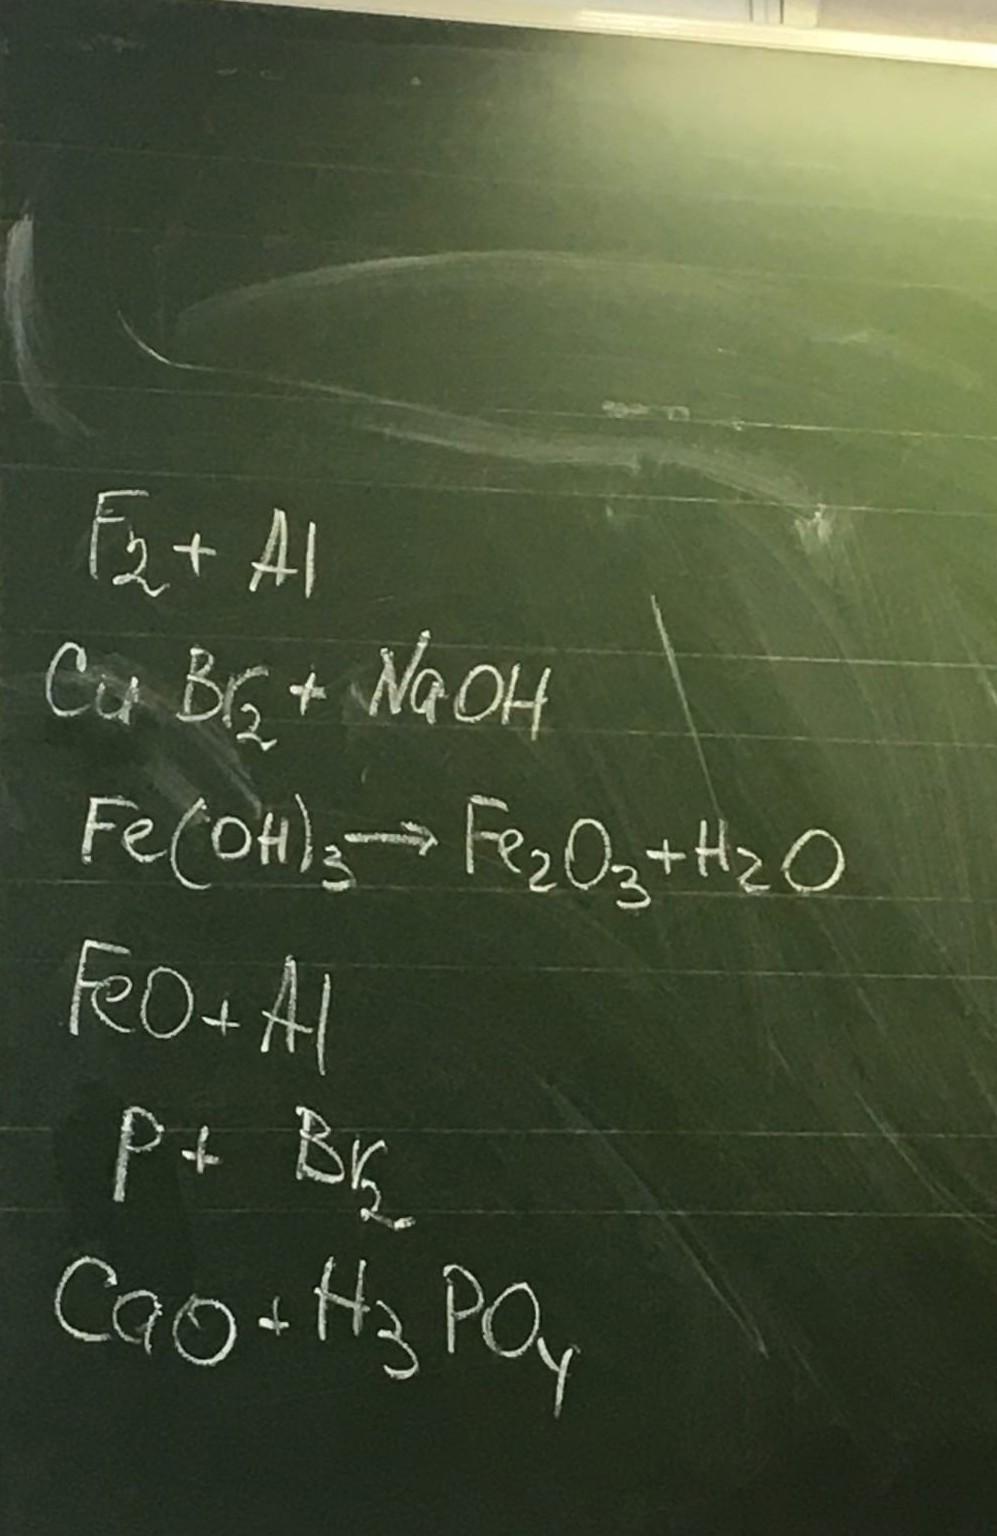 F₂ + Al
CuBr₂ + NaOH
Fe(OH)₃ → Fe₂O₃ + H₂O
FeO + Al
P + Br₂
CaO + H₃PO₄